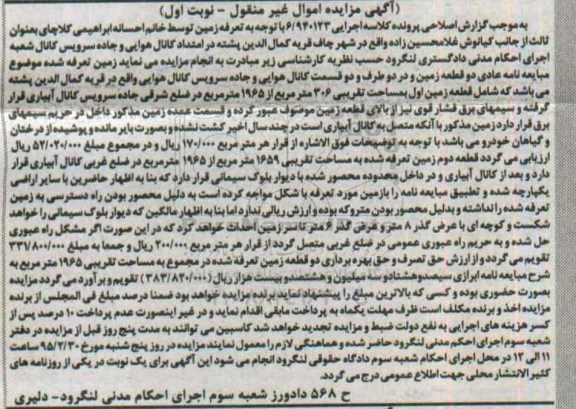 (آگهی مزایده اموال غیر منقول - نوبت اول)
به موجب گزارش اصلاحی پرونده کلاسه اجرایی ۶/۹۴۰۱۲۳ با توجه به تعرفه زمین توسط خانم احسانه ابراهیمی کلاچای بعنوان
ثالث از جانب کیانوش غلامحسین زاده واقع در شهر چاف قریه کمال الدین پشته در امتداد کانال هوایی و جاده سرویس کانال شعبه
اجرای احکام مدنی دادگستری لنگرود حسب نظریه کارشناسی زیر مبادرت به انجام مزایده می نماید زمین تعرفه شده موضوع
مبایعه نامه عادی دو قطعه زمین و در دو طرف و دو قسمت کانال هوایی و جاده سرویس کانال هوایی واقع در قریه کمال الدین پشته
می باشد که شامل قطعه زمین اول بمساحت تقریبی ۳۰۶ متر مربع از ۱۹۶۵ مترمربع در ضلع شرقی جاده سرویس کانال آبیاری قرار
گرفته و سیمهای برق فشار قوی نیز از بالای قطعه زمین موصوف عبور کرده و قسمت عمده زمین مذکور داخل در حریم سیمهای
برق قرار دارد زمین مذکور با آنکه متصل به کانال آبیاری است در چند سال اخیر کشت نشده و بصورت بایر مانده و پوشیده از درختان
و گیاهان خودرو می باشد با توجه به توضیحات فوق الاشاره از قرار هر متر مربع ۱۷۰/۰۰۰ ریال و در مجموع مبلغ ۵۲/۰۲۰/۰۰۰ ریال
ارزیابی می گردد قطعه دوم زمین تعرفه شده به مساحت تقریبی ۱۶۵۹ متر مربع از ۱۹۶۵ مترمربع در ضلع غربی کانال آبیاری قرار
دارد و بعد از کانال آبیاری و در داخل محدوده محصور شده با دیوار بلوک سیمانی قرار دارد که بنا به اظهار حاضرین با سایر اراضی
یکپارچه شده و تطبیق مبایعه نامه را بازمین مورد تعرفه با شکل مواجه کرده است به دلیل محصور بودن راه دسترسی به زمین
تعرفه شده را نداشته و بدلیل محصور بودن متروکه بوده و ارزش ریالی ندارد اما بنا به اظهار مالکین که دیوار بلوک سیمانی را خواهد
شکست و کوچه ای با عرض گذر ۸ متر و عرض گذر ۶ متر تا سر زمین احداث خواهد کرد که در این صورت اگر مشکل راه عبوری
حل شده و به حریم راه عبوری عمومی در ضلع غربی متصل گردد از قرار هر متر مربع ۲۰۰/۰۰۰ ریال و جمعا به مبلغ ۳۳۱/۸۰۰/۰۰۰
تقویم می گردد و از ارزش حق تصرف و حق بهره برداری دو قطعه زمین تعرفه شده در مجموع به مساحت تقریبی ۱۹۶۵ متر مربع به
شرح مبایعه نامه ابرازی سیصدو هشتادو سه میلیون و هشتصدو بیست هزار ریال (۳۸۳/۸۲۰/۰۰۰) تقویم و برآورد می گردد مزایده
بصورت حضوری بوده و کسی که بالاترین مبلغ را پیشنهاد نماید برنده مزایده خواهد بود ضمنا درصد مبلغ فی المجلس از برنده
مزایده اخذ و برنده مکلف است ظرف مهلت یکماه به پرداخت مابقی اقدام نماید و در غیر اینصورت عدم پرداخت ۱۰ درصد پس از
کسر هزینه های اجرایی به نفع دولت ضبط و مزایده تجدید خواهد شد کاسبین می توانند به مدت پنج روز قبل از مزایده در دفتر
شعبه سوم اجرای احکام مدنی لنگرود حاضر شده و هماهنگی لازم را معمول نمایند مزایده در روز پنج شنبه مورخ ۹۵/۲/۳۰ ساعت
۱۱ الی ۱۲ در محل اجرای احکام شعبه سوم دادگاه حقوقی لنگرود انجام می شود این آگهی برای یک نوبت در یکی از روزنامه های
کثیر الانتشار محلی جهت اطلاع عمومی درج می گردد.
ح ۵۶۸ دادورز شعبه سوم اجرای احکام مدنی لنگرود- دلیری